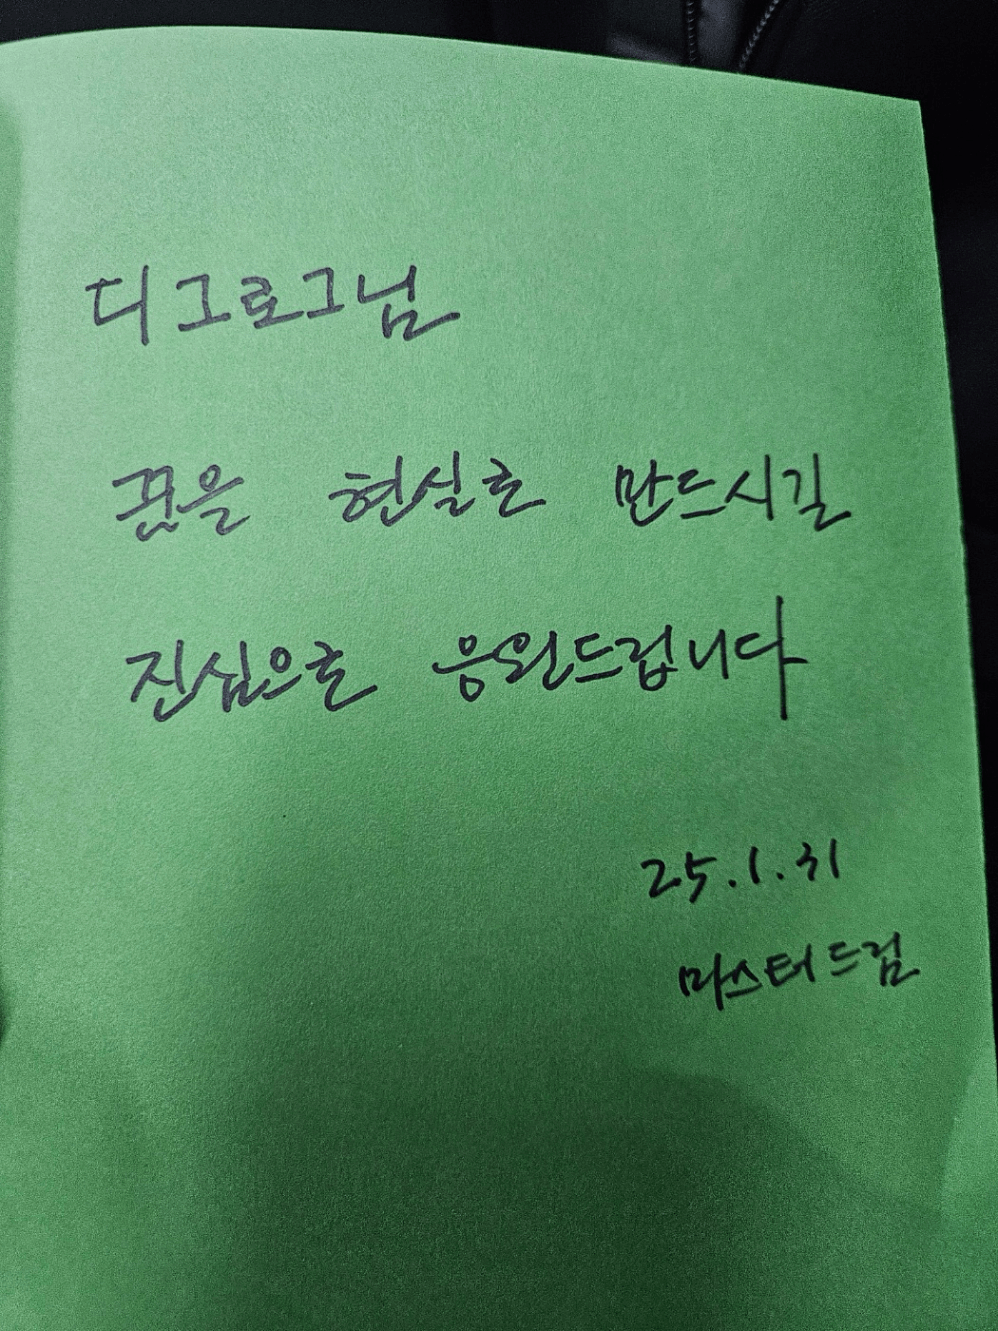 디그로그님
꿈을 현실로 만드시길
진심으로 응원드립니다
25.1.31
마스터드림